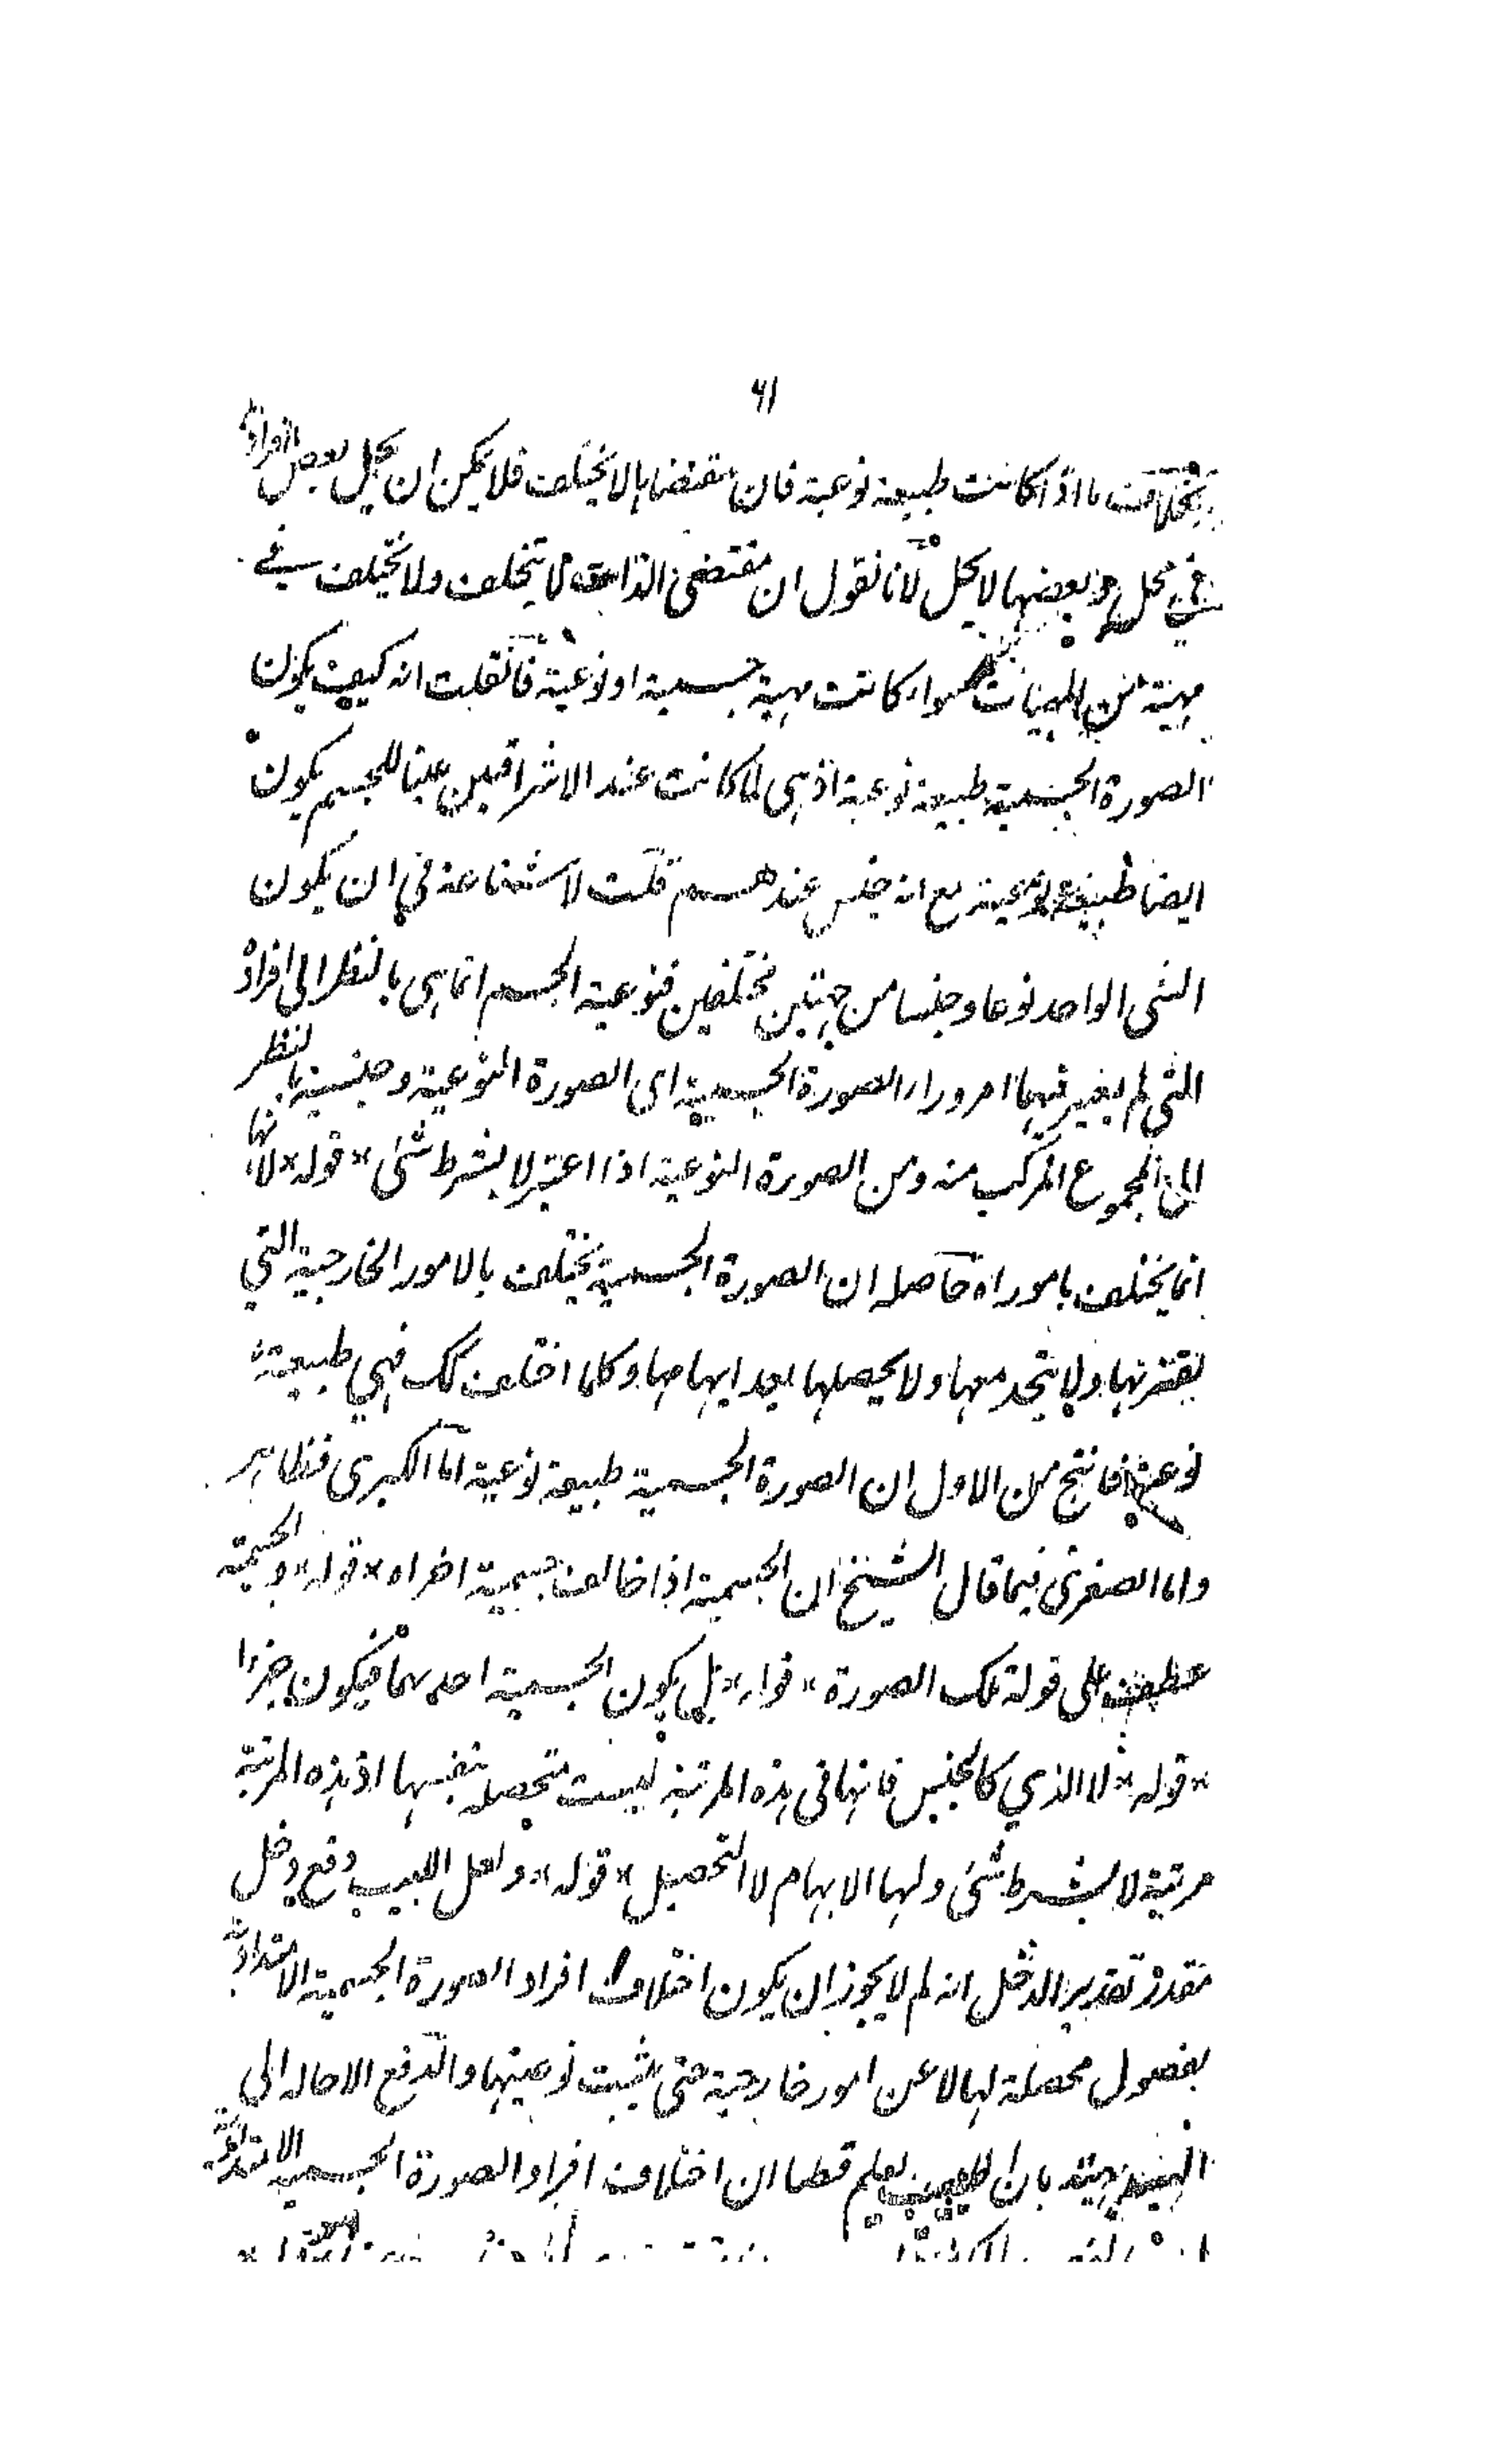 ٦١
بخلاف ما اذا كانت طبيعة نوعية فان مقتضاها لا يختلف فلا يمكن ان يحل بعض افرادها
في محل و بعضها لا يحل لانا نقول ان مقتضى الذات لا يتخلف ولا يختلف في
مهية من المهيات سواء كانت مهية جسمية او نوعية فان قلت انه كيف يكون
الصورة الجسمية طبيعة نوعية اذ هي لما كانت عند الاشراقيين عينا للجسم يكون
ايضا طبيعة نوعية مع انه جنس عندهم قلت لا شناعة في ان يكون
الشئ الواحد نوعا وجنسا من جهتين مختلفين فنوعية الجسم انما هي بالنظر الى افراد
التي لم يعتبر فيها امر وراء الصورة الجسمية اى الصورة النوعية وجنسية بالنظر
الى المجموع المركب منه ومن الصورة النوعية اذا اعتبر لا بشرط شئ * قوله * لانها
انما يختلف بامور اه حاصله ان الصورة الجسمية يختلف بالامور الخارجية التي
تقترنها ولا يتحد معها ولا يحصلها بعد ابهامها وكلما اختلف كك فهي طبيعة
نوعية فانتج من الاول ان الصورة الجسمية طبيعة نوعية اما الكبرى فظاهر
واما الصغرى فبما قال الشيخ ان الجسمية اذا خالف جسمية اخراه * قوله * والجسمية
عطف على قوله تلك الصورة * قوله * بل يكون الجسمية احدهما فيكون جزءا
* قوله * لا الذي كالجنس فانها في هذه المرتبة ليست متحصلة بنفسها اذ هذه المرتبة
مرتبة لا بشرط شئ ولها الابهام لا التحصيل * قوله * ولعل اللبيب دفع دخل
مقدر تقدير الدخل انه لم لا يجوز ان يكون اختلاف افراد الصورة الجسمية الامتدادية
بفصول محصلة لها لا عن امور خارجية حتى يثبت نوعيتها والدفع الاحالة الى
بان اللبيب يعلم قطعا ان اختلاف افراد الصورة الجسمية الامتدادية